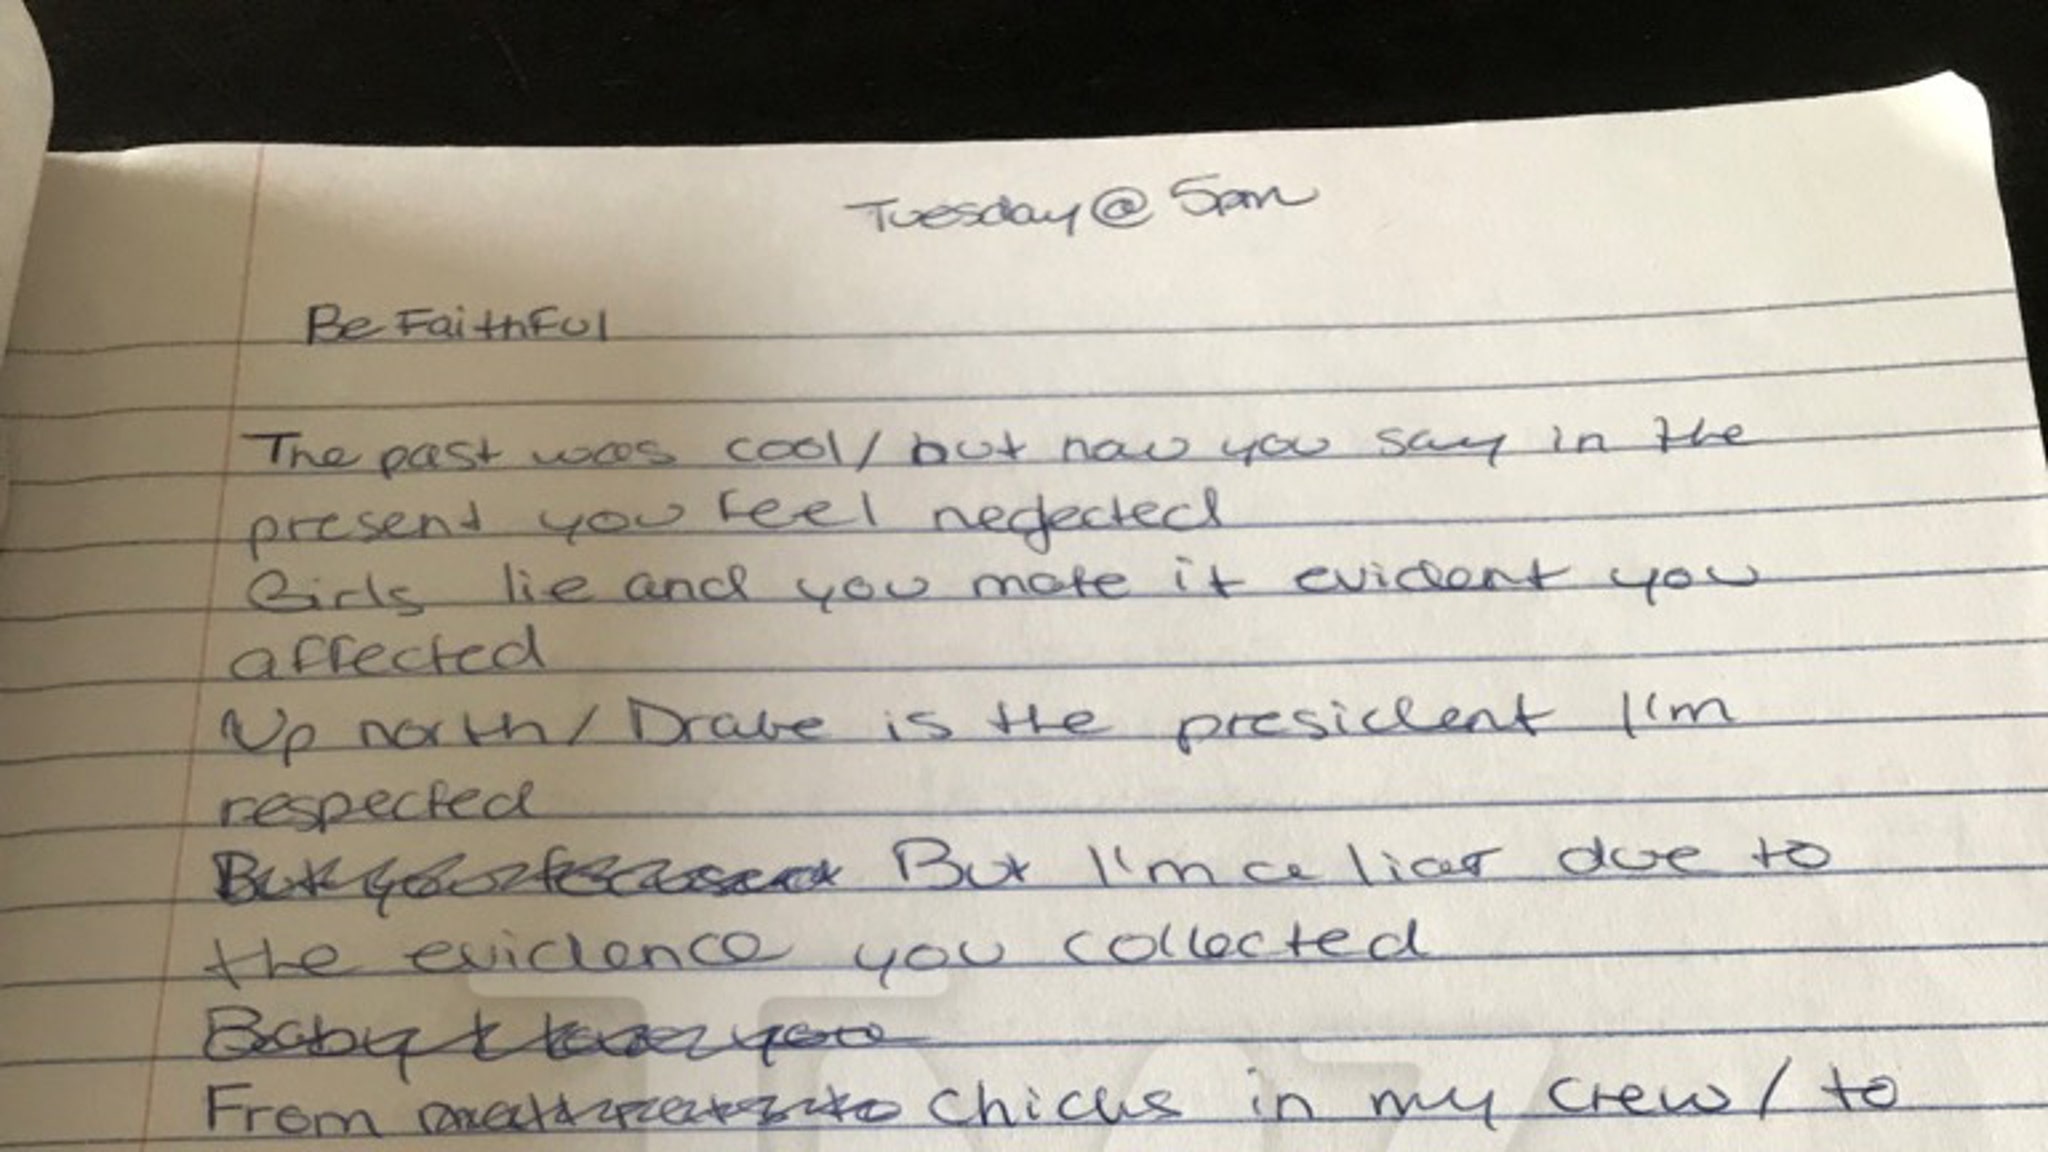 Tuesday @ 5pm
Be FaithFul
The past was cool / but now you say in the
present you feel neglected
Girls lie and you make it evident you
affected
Up north / Drake is the president I'm
respected
But I'm a liar due to
the evidence you collected
Baby I you
From chicks in my crew / to
TMZ